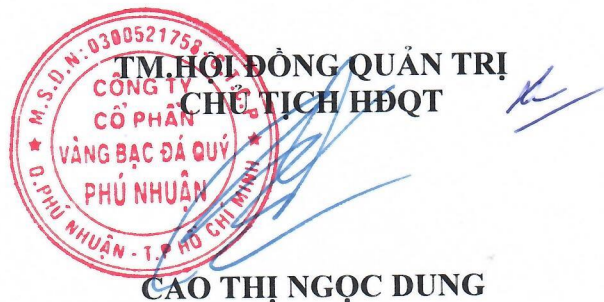 TM.HỘI ĐỒNG QUẢN TRỊ
CHỦ TỊCH HĐQT
M.S.D.N: 0300521758
CÔNG TY
CỔ PHẦN
VÀNG BẠC ĐÁ QUÝ
PHÚ NHUẬN
Q.PHÚ NHUẬN - T.P HỒ CHÍ MINH
CAO THỊ NGỌC DUNG